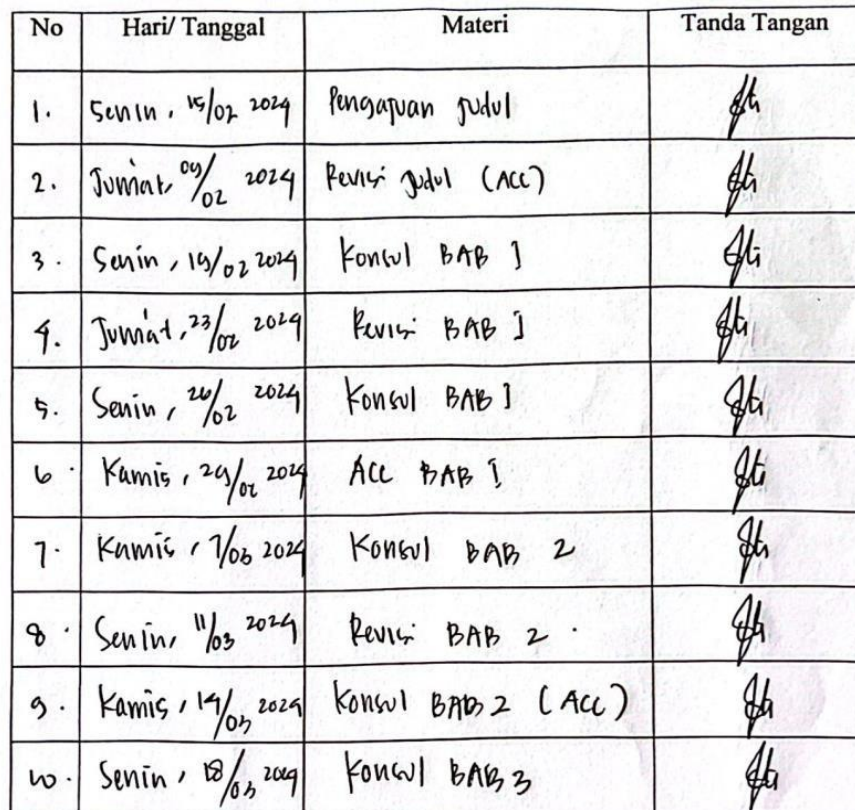 No Hari/ Tanggal Materi Tanda Tangan
1. Senin, 15/02 2024 Pengajuan Judul
2. Jumat, 09/02 2024 Revisi Judul (ACC)
3. Senin, 19/02 2024 Konsul BAB I
4. Jumat, 23/02 2024 Revisi BAB I
5. Senin, 26/02 2024 Konsul BAB I
6. Kamis, 29/02 2024 ACC BAB I
7. Kamis, 7/03 2024 Konsul BAB 2
8. Senin, 11/03 2024 Revisi BAB 2
9. Kamis, 14/03 2024 Konsul BAB 2 (ACC)
10. Senin, 18/03 2024 Konsul BAB 3